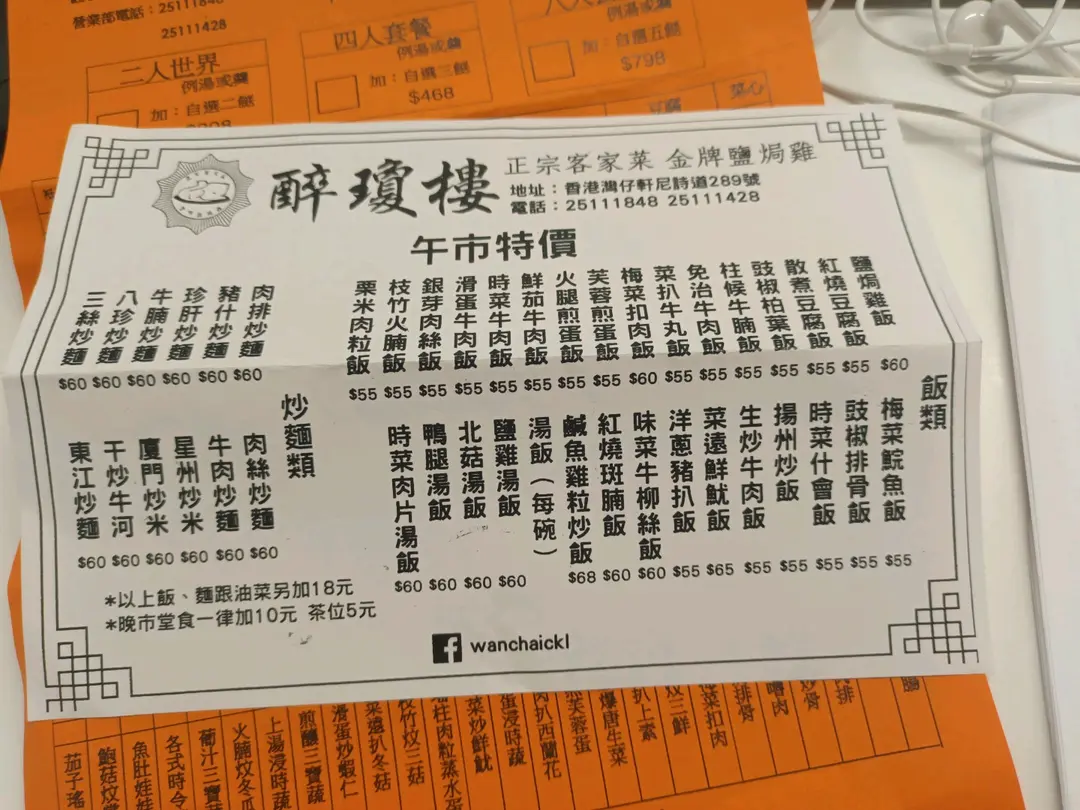 營業部電話：25111848
25111428
二人世界
例湯或
加：自選二餸
四人套餐
例湯或
加：自選三餸
$468
加：自選五餸
$798
菜心
醉瓊樓
正宗客家菜 金牌鹽焗雞
地址：香港灣仔軒尼詩道289號
電話：25111848 25111428
午市特價
飯類
鹽焗雞飯 $60
紅燒豆腐飯 $55
散煮豆腐飯 $55
豉椒柏葉飯 $55
柱候牛腩飯 $55
免治牛肉飯 $55
菜扒牛丸飯 $55
梅菜扣肉飯 $60
芙蓉煎蛋飯 $55
火腿煎蛋飯 $55
鮮茄牛肉飯 $55
時菜牛肉飯 $55
滑蛋牛肉飯 $55
銀芽肉絲飯 $55
枝竹火腩飯 $55
栗米肉粒飯 $55
梅菜鯇魚飯 $55
豉椒排骨飯 $55
時菜什會飯 $55
揚州炒飯 $55
生炒牛肉飯 $55
菜遠鮮魷飯 $65
洋蔥豬扒飯 $55
味菜牛柳絲飯 $60
紅燒斑腩飯 $60
鹹魚雞粒炒飯 $68
湯飯（每碗）
鹽雞湯飯 $60
北菇湯飯 $60
鴨腿湯飯 $60
時菜肉片湯飯 $60
炒麵類
肉排炒麵 $60
豬什炒麵 $60
珍肝炒麵 $60
牛腩炒麵 $60
八珍炒麵 $60
三絲炒麵 $60
肉絲炒麵 $60
牛肉炒麵 $60
星州炒米 $60
廈門炒米 $60
干炒牛河 $60
東江炒麵 $60
*以上飯、麵跟油菜另加18元
*晚市堂食一律加10元 茶位5元
wanchaickl
肉排
炒骨
嚕肉
排骨
菜扣肉
炆三鮮
扒上素
爆唐生菜
芙蓉蛋
肉扒西蘭花
蛋浸時蔬
菜炒鮮魷
柱肉粒蒸水蛋
枝竹炆三菇
菜遠扒冬菇
滑蛋炒蝦仁
煎釀三寶
上湯浸時蔬
火腩炆冬瓜
葡汁三寶蔬
各式時令
魚肚娃娃
鮑菇炆
茄子瑤